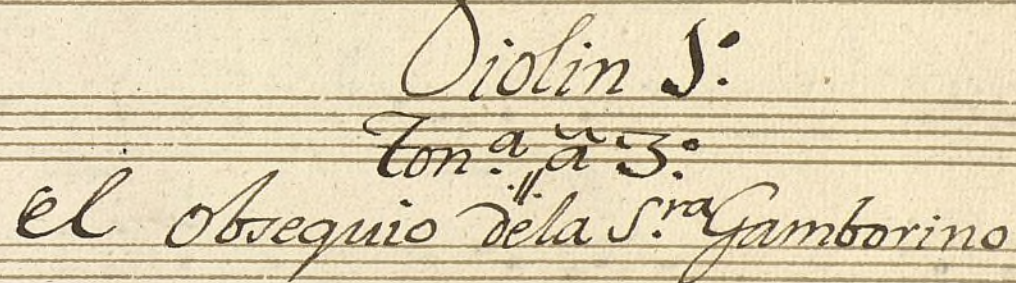 Violin 1º
Ton.ª â 3.º
el obsequio dela S.ra Gamborino